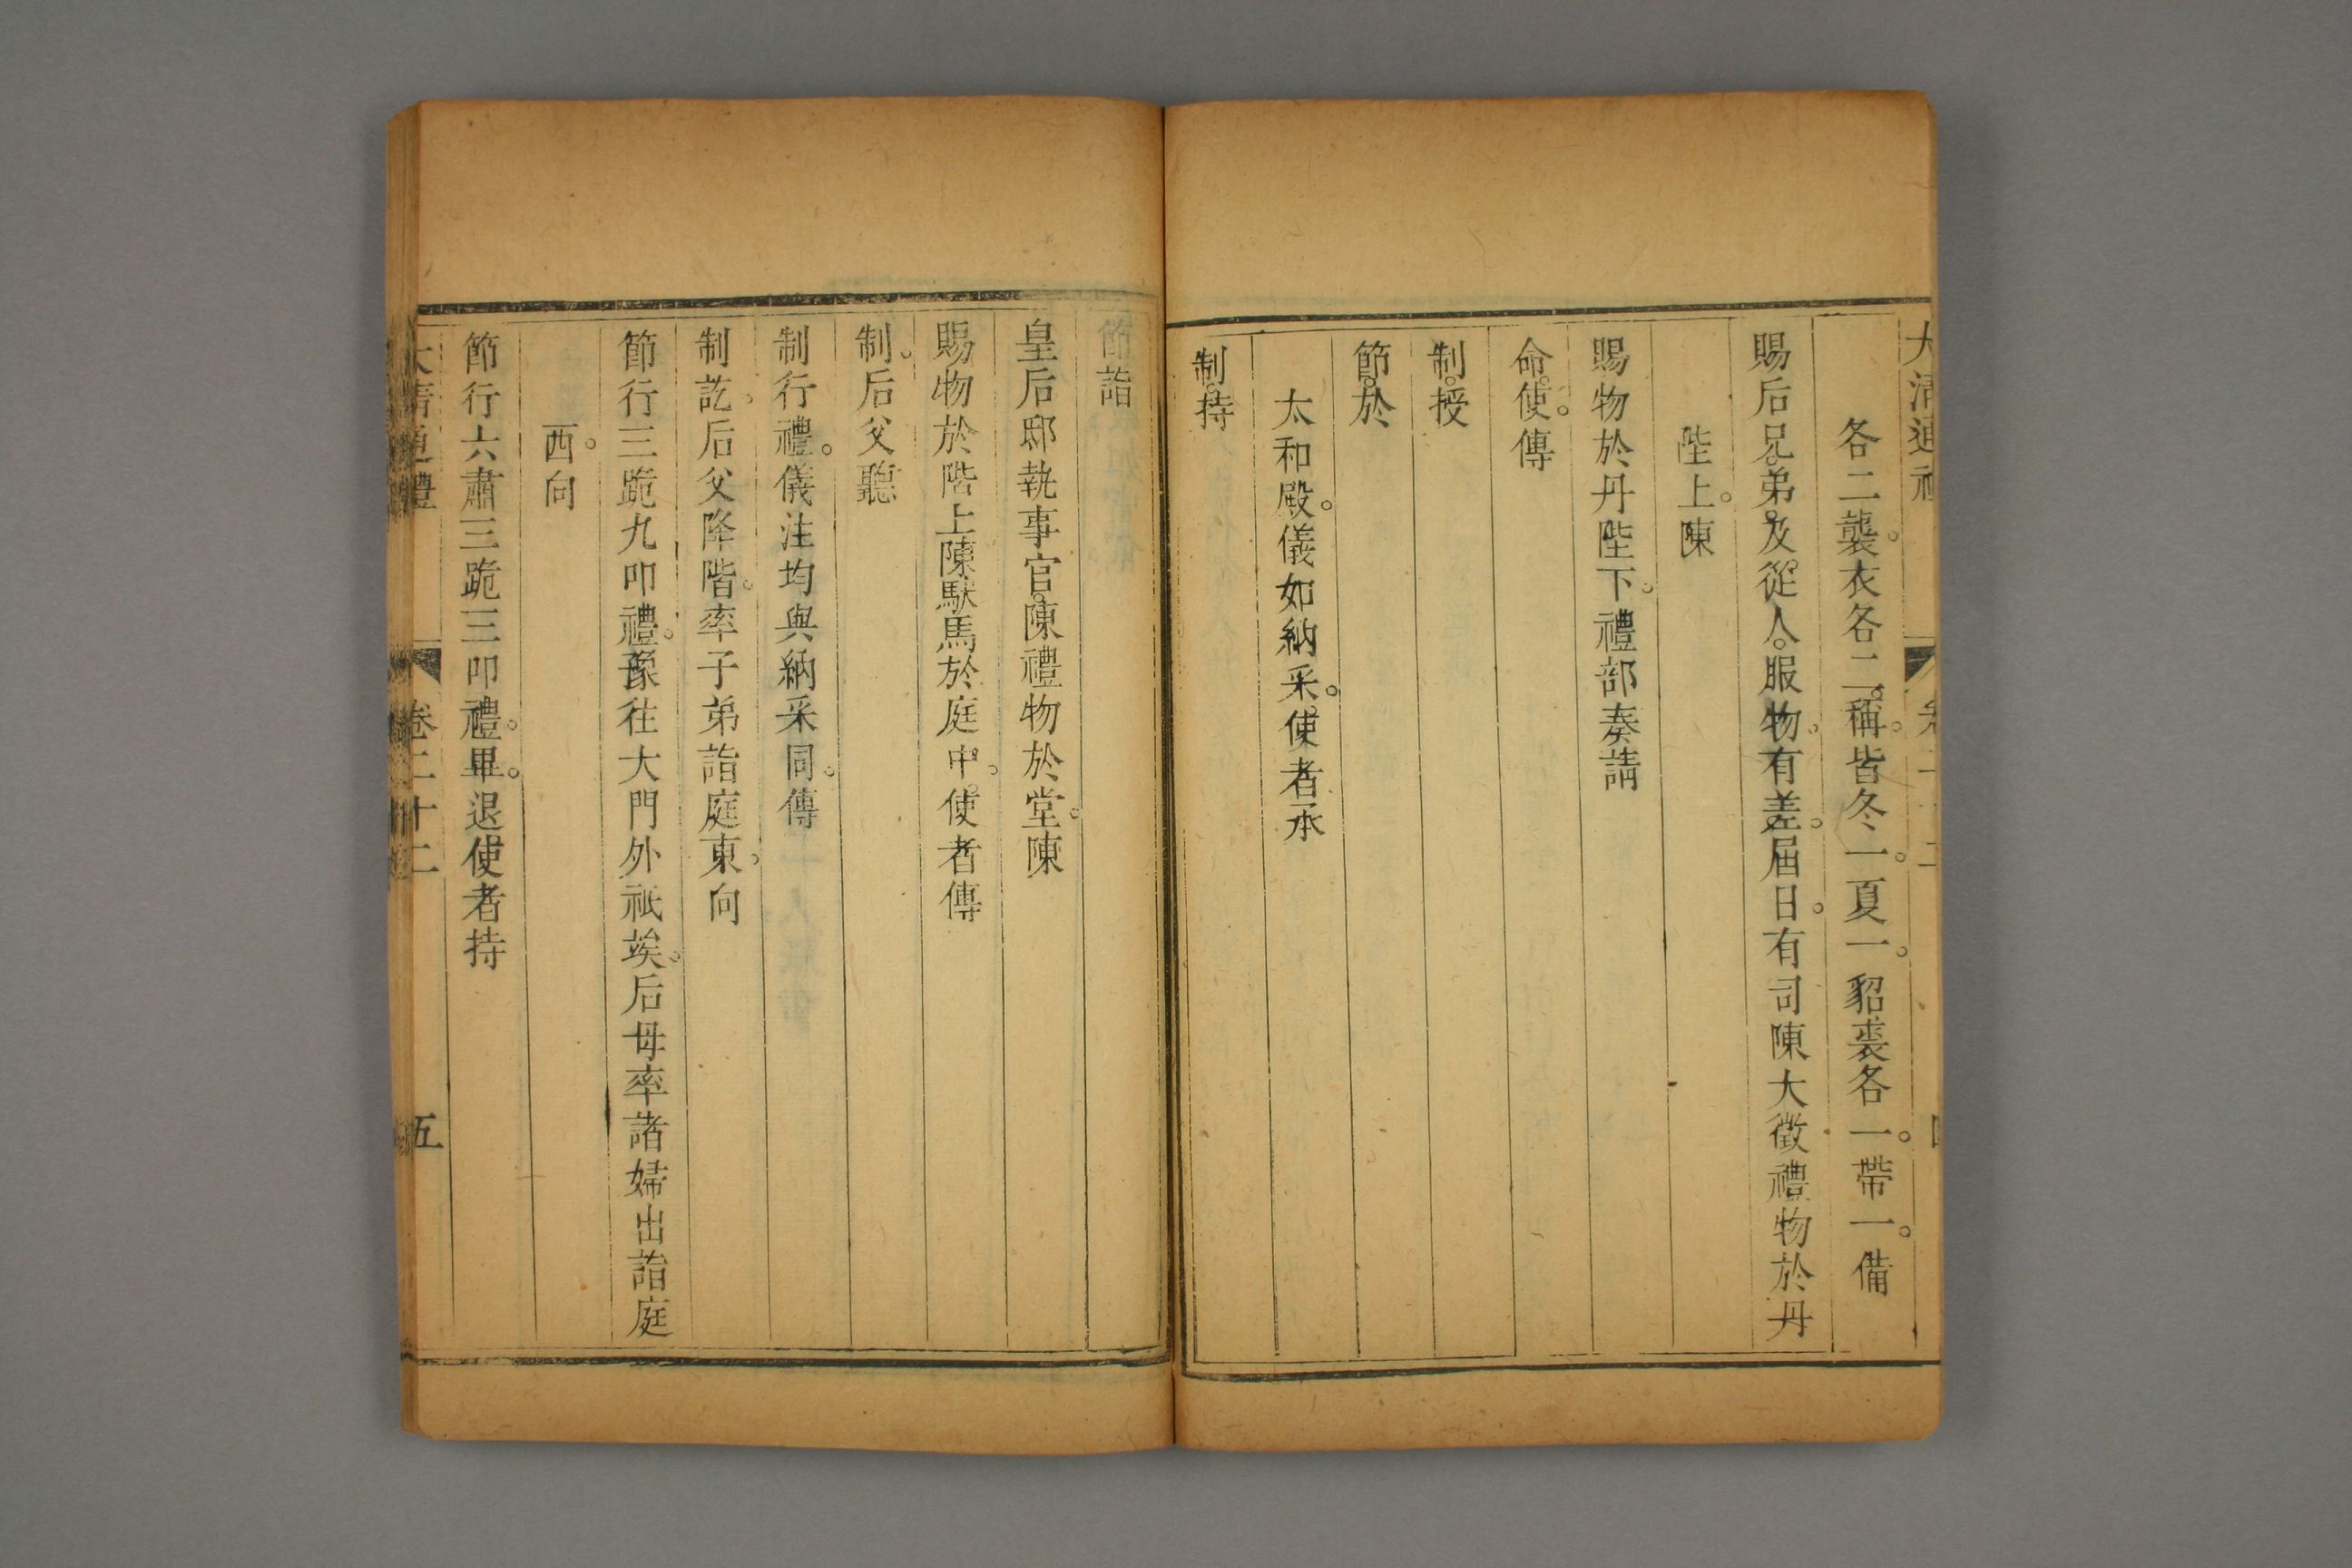 大清通禮
卷二十二
各二襲。衣各二稱。皆冬一。夏一。貂裘各一。帶一。備
賜后兄弟及從人服物有差。届日。有司陳大徵禮物於丹
陛上。陳
賜物於丹陛下。禮部奏請
命使。傳
制。授
節於
太和殿。儀如納采。使者承
制。持
節詣
皇后邸執事官陳禮物於堂。陳
賜物於階上陳馱馬於庭中。使者傳
制。后父聽
制行禮。儀注均與納采同。傳
制訖。后父降階。率子弟詣庭東。向
節行三跪九叩禮。豫往大門外祗竢。后母率諸婦出詣庭
西。向
節行六肅三跪三叩禮。畢。退使者持
大清通禮
卷二十二
五